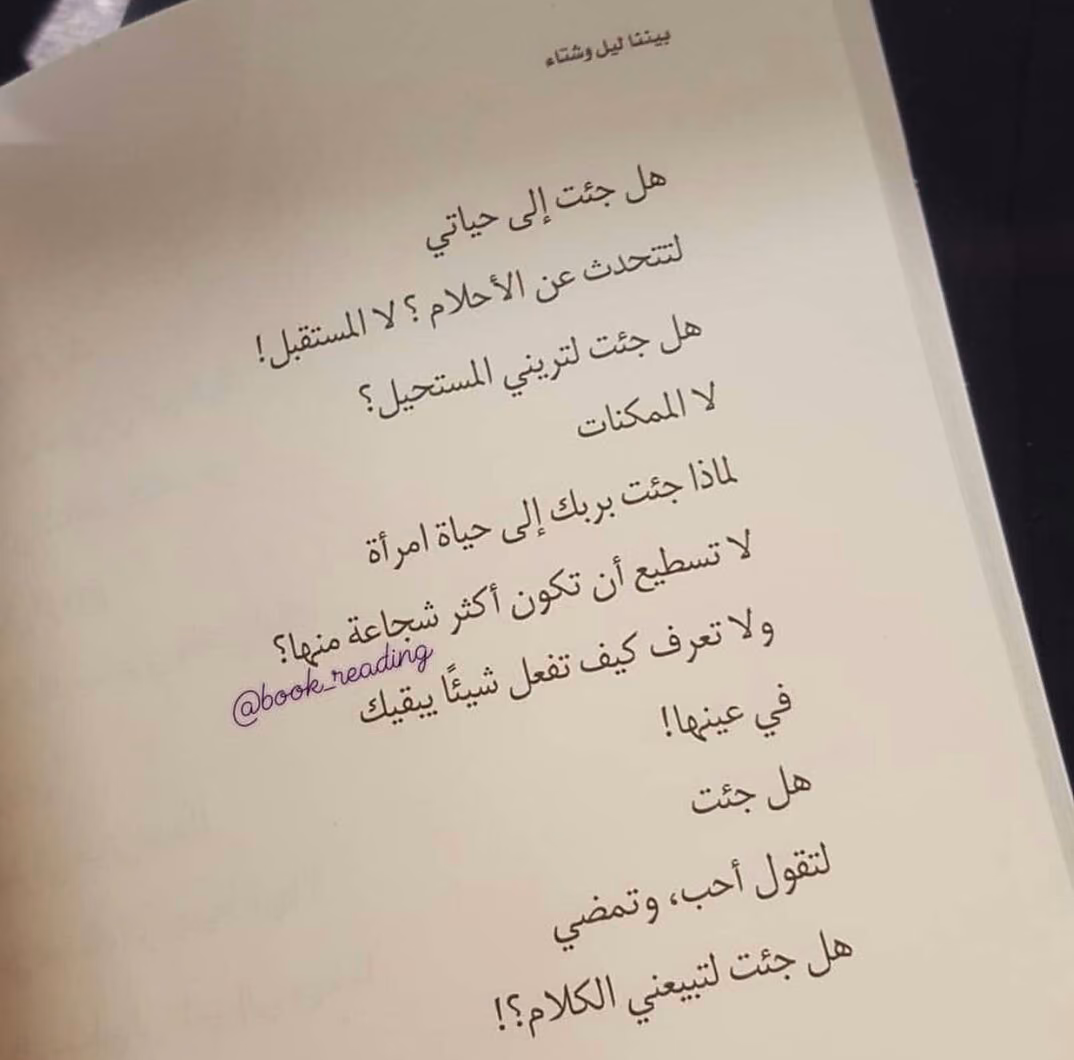 بيننا ليل وشتاء
هل جئت إلى حياتي
لتتحدث عن الأحلام ؟ لا المستقبل!
هل جئت لتريني المستحيل؟
لا الممكنات
لماذا جئت بربك إلى حياة امرأة
لا تسطيع أن تكون أكثر شجاعة منها؟
ولا تعرف كيف تفعل شيئًا يبقيك
@book_reading
في عينها!
هل جئت
لتقول أحب، وتمضي
هل جئت لتبيعني الكلام؟!